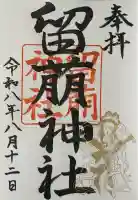 奉拝
留萠神社
令和八年八月十二日